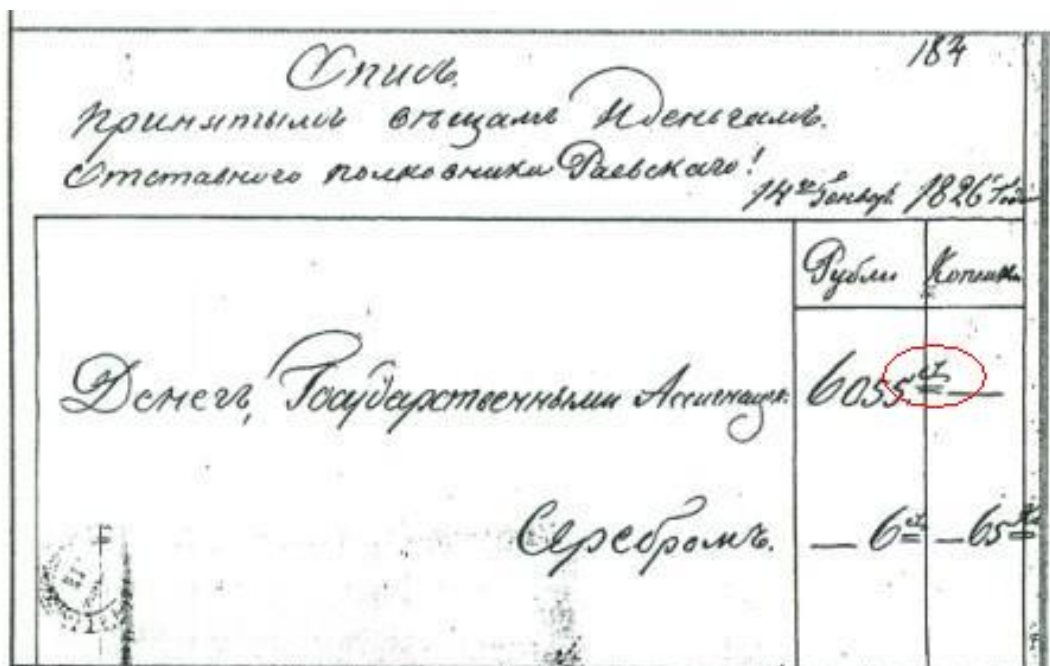 184
Опись.
принятымъ вѣщамъ И деньгамъ.
Отставного полковника Раевскаго!
14го Генваря 1826го Года
Рубли Копѣйки
Денегъ, Государственными Ассигнац: 6055 —
Серебромъ. — 6 — 65